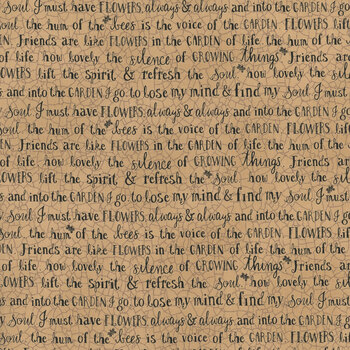 Soul I must have FLOWERS, always & always and into the GARDEN
Soul the hum of the bees is the voice of the GARDEN. FLOWERS lift
en. Friends are like FLOWERS in the GARDEN of life the hum of the
of life how lovely the silence of GROWING things Friends are
LOWERS lift the spirit & refresh the Soul how lovely the sil
s and into the GARDEN I go to lose my mind & find my Soul I
my Soul I must have FLOWERS, always & always and into the GARDE
Soul the hum of the bees is the voice of the GARDEN. FLOWERS l
EN. Friends are like FLOWERS in the GARDEN of life the hum of the
of life how lovely the silence of GROWING things Friends
FLOWERS lift the spirit & refresh the Soul how lovely the
ys and into the GARDEN I go to lose my mind & find my Soul I
my Soul I must have FLOWERS, always & always and into the GARD
Soul the hum of the bees is the voice of the GARDEN. FLOWERS
DEN. Friends are like FLOWERS in the GARDEN of life the hum of th
N of life how lovely the silence of GROWING things Friend
FLOWERS lift the spirit & refresh the Soul how lovely the
ays and into the GARDEN I go to lose my mind & find my Soul
my Soul I must have FLOWERS, always & always and into the GAR